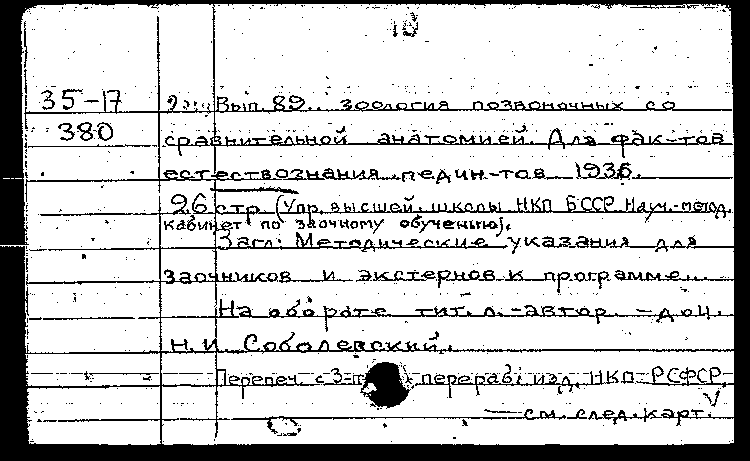 18
35-17
380
Вып. 89. зоология позвоночных со
сравнительной анатомией. Для фак-тов
естествознания педин-тов 1936.
26 стр (Упр. высшей. школы НКП БССР. Науч.-метод.
кабинет по заочному обучению).
Загл: Методические указания для
заочников и экстернов к программе...
На обороте тит. л. - автор - доц.
Н. И. Соболевский.
Перепеч. с 3-го перераб. изд. НКП-РСФСР.
— см. след. карт.